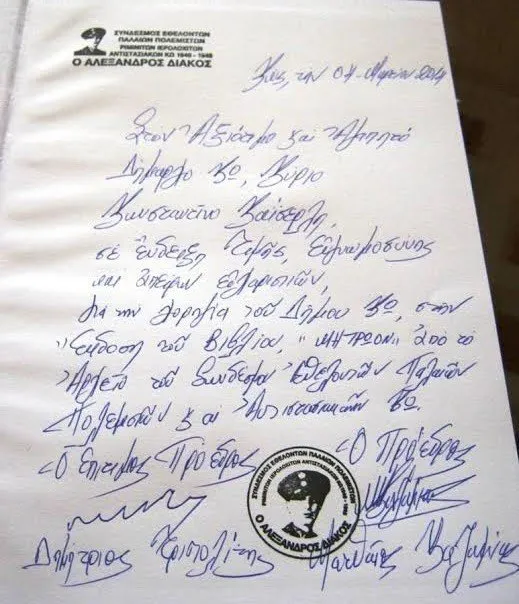 ΣΥΝΔΕΣΜΟΣ ΕΘΕΛΟΝΤΩΝ
ΠΑΛΑΙΩΝ ΠΟΛΕΜΙΣΤΩΝ
ΡΙΜΙΝΙΤΩΝ ΙΕΡΟΛΟΧΙΤΩΝ
ΑΝΤΙΣΤΑΣΙΑΚΩΝ ΚΩ 1940 - 1945
Ο ΑΛΕΞΑΝΔΡΟΣ ΔΙΑΚΟΣ
Κως, την 04 - Μαρτίου 2014
Στον Ἀξιότιμο και Ἀγαπητό
Δήμαρχο Κω, Κύριο
Κωνσταντίνο Καΐσερλη,
σέ Ἔνδειξη Τιμῆς, Εὐγνωμοσύνης
και ἄπειρων εὐχαριστιῶν,
για την χορηγία τοῦ Δήμου Κω, στην
Ἔκδοση τοῦ Βιβλίου, "ΜΗΤΡΩΟΝ" ἀπό το
Ἀρχεῖο τοῦ Συνδέσμου Ἐθελοντῶν Παλαιῶν
Πολεμιστῶν και Ἀντιστασιακῶν Κω.
Ὁ Ἐπίτιμος Πρόεδρος
Ὁ Πρόεδρος
ΣΥΝΔΕΣΜΟΣ ΕΘΕΛΟΝΤΩΝ ΠΑΛΑΙΩΝ ΠΟΛΕΜΙΣΤΩΝ
ΡΙΜΙΝΙΤΩΝ ΙΕΡΟΛΟΧΙΤΩΝ ΑΝΤΙΣΤΑΣΙΑΚΩΝ ΚΩ 1940 - 1945
Ο ΑΛΕΞΑΝΔΡΟΣ ΔΙΑΚΟΣ
Δημήτριος